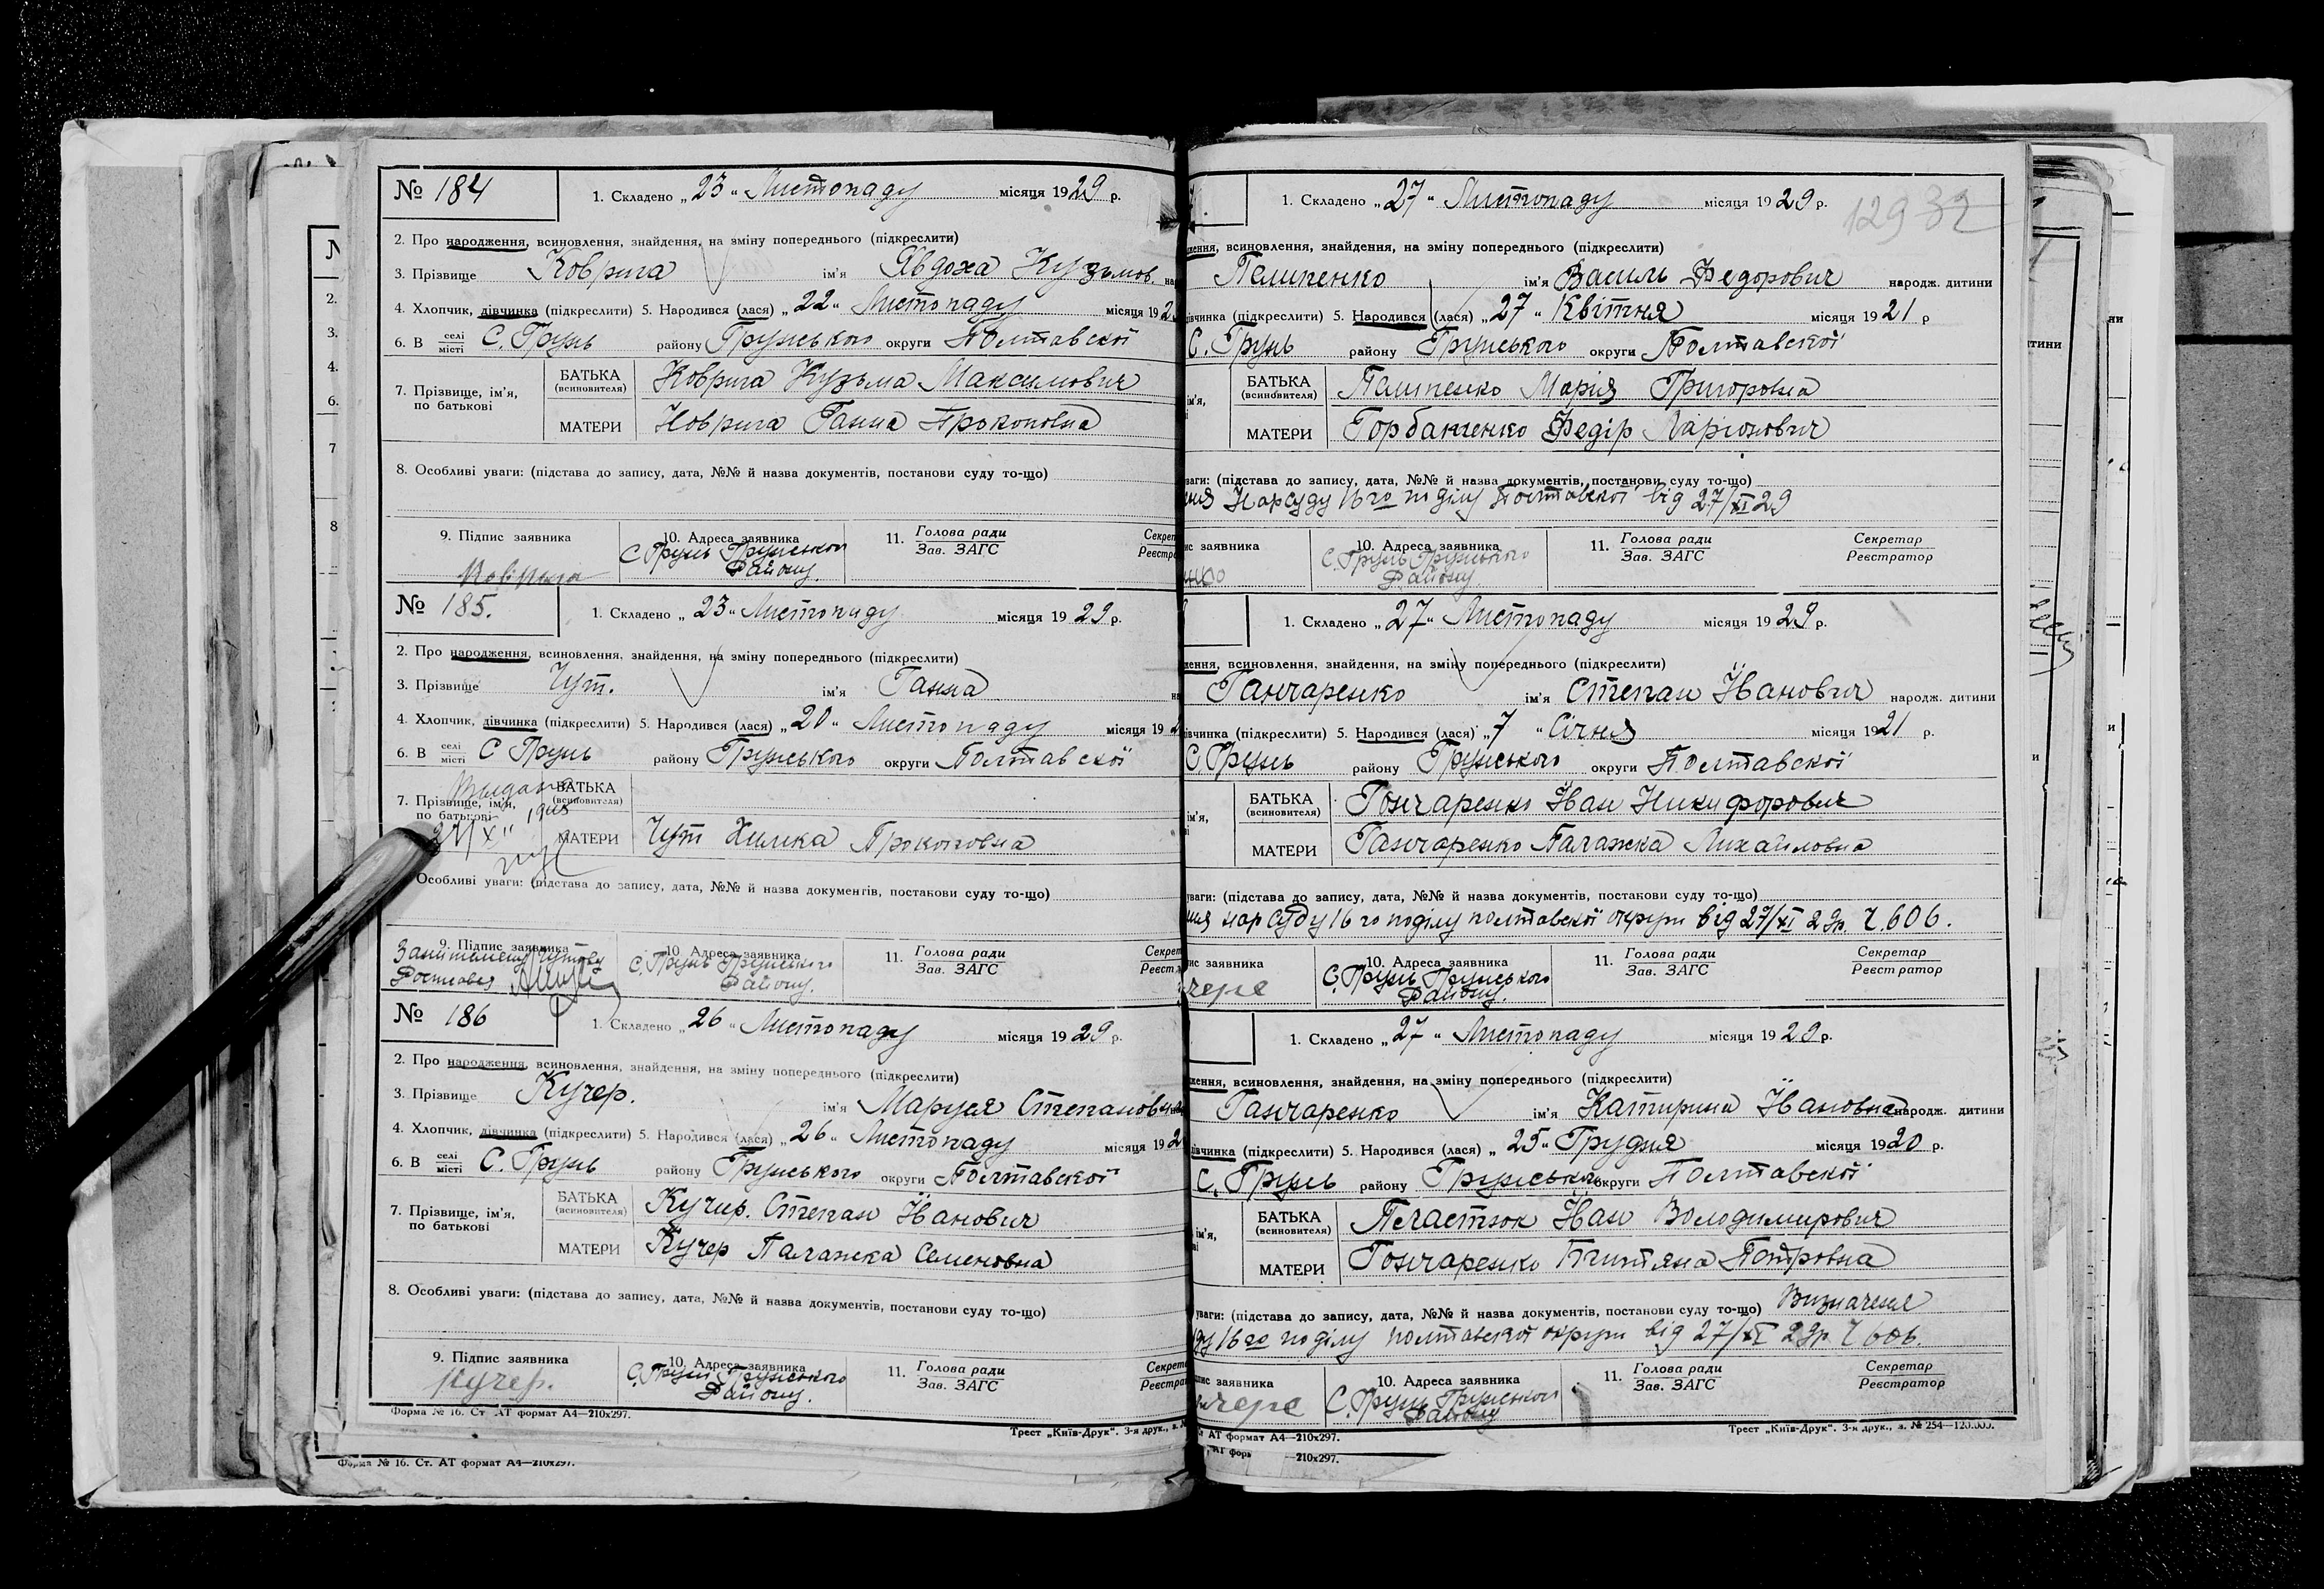 № 184
1. Складено „23“ Листопаду місяця 1929 р.
2. Про народження, всиновлення, знайдення, на зміну попереднього (підкреслити)
3. Прізвище Коврига ім'я Явдоха Кузьмов.
4. Хлопчик, дівчинка (підкреслити) 5. Народився (лася) „22“ Листопаду місяця 192
6. В селі місті С. Грунь району Грунського округи Полтавскої
7. Прізвище, ім'я, по батькові
БАТЬКА (всиновителя) Коврига Кузьма Максимович
МАТЕРИ Коврига Ганна Прокоповна
8. Особливі уваги: (підстава до запису, дата, №№ й назва документів, постанови суду то-що)
9. Підпис заявника 10. Адреса заявника 11. Голова ради Зав. ЗАГС
С. Грунь Грунського Району.
№ 185.
1. Складено „23“ Листопаду місяця 1929 р.
2. Про народження, всиновлення, знайдення, на зміну попереднього (підкреслити)
3. Прізвище Чут. ім'я Ганна
4. Хлопчик, дівчинка (підкреслити) 5. Народився (лася) „20“ Листопаду місяця 192
6. В селі місті С Грунь району Грунського округи Полтавскої
7. Прізвище, ім'я, по батькові
БАТЬКА (всиновителя)
МАТЕРИ Чут Химка Прокоповна
Особливі уваги: (підстава до запису, дата, №№ й назва документів, постанови суду то-що)
9. Підпис заявника 10. Адреса заявника 11. Голова ради Зав. ЗАГС
С. Грунь Грунського Району.
№ 186
1. Складено „26“ Листопаду місяця 1929 р.
2. Про народження, всиновлення, знайдення, на зміну попереднього (підкреслити)
3. Прізвище Кучер. ім'я Маруся Степановна
4. Хлопчик, дівчинка (підкреслити) 5. Народився (лася) „26“ Листопаду місяця 192
6. В селі місті С. Грунь району Грунського округи Полтавскої
7. Прізвище, ім'я, по батькові
БАТЬКА (всиновителя) Кучир. Степан Іванович
МАТЕРИ Кучер Палажка Семеновна
8. Особливі уваги: (підстава до запису, дата, №№ й назва документів, постанови суду то-що)
9. Підпис заявника 10. Адреса заявника 11. Голова ради Зав. ЗАГС
Кучер. С. Грунь Грунського Району.
Форма № 16. Ст АТ формат А4—210х297.
Трест „Київ-Друк“. 3-я друк.,
Форма № 16. Ст. АТ формат А4—210х297.
1. Складено „27“ Листопаду місяця 1929 р.
всиновлення, знайдення, на зміну попереднього (підкреслити)
Пелипенко ім'я Василь Федорович народж. дитини
(підкреслити) 5. Народився (лася) „27“ Квітня місяця 1921 р
С. Грунь району Грунського округи Полтавскої
БАТЬКА (всиновителя) Пелипенко Марія Григоровна
МАТЕРИ Горбанченко Федір Ларіонович
(підстава до запису, дата, №№ й назва документів, постанови суду то-що)
Нарсуду 16го поділу Полтавскої від 27/XI 29
заявника 10. Адреса заявника 11. Голова ради Зав. ЗАГС Секретар Реєстратор
С. Грунь Грунського Району
1. Складено „27“ Листопаду місяця 1929 р.
всиновлення, знайдення, на зміну попереднього (підкреслити)
Ганчаренко ім'я Степан Іванович народж. дитини
(підкреслити) 5. Народився (лася) „7“ Січня місяця 1921 р.
С. Грунь району Грунського округи Полтавскої
БАТЬКА (всиновителя) Гончаренко Іван Никифорович
МАТЕРИ Ганчаренко Палажка Михайловна
уваги: (підстава до запису, дата, №№ й назва документів, постанови суду то-що)
нарсуду 16 го поділу полтавскої округи від 27/XI 29р. Ч. 606.
заявника 10. Адреса заявника 11. Голова ради Зав. ЗАГС Секретар Реєстратор
С. Грунь Грунського Району.
1. Складено „27“ Листопаду місяця 1929 р.
всиновлення, знайдення, на зміну попереднього (підкреслити)
Ганчаренко ім'я Катирина Івановна народж. дитини
(підкреслити) 5. Народився (лася) „25“ Грудня місяця 1920 р.
С. Грунь району Грунського округи Полтавскої
БАТЬКА (всиновителя) Пластюк Іван Володимирович
МАТЕРИ Гончаренко Петровна
уваги: (підстава до запису, дата, №№ й назва документів, постанови суду то-що) Визначення
16го поділу полтавскої округи від 27/XI 29р. Ч 606.
заявника 10. Адреса заявника 11. Голова ради Зав. ЗАГС Секретар Реєстратор
С. Грунь Грунського Району
АТ формат А4—210х297.
Трест „Київ-Друк“. 3-я друк., з. № 254—120.000.
210х297.